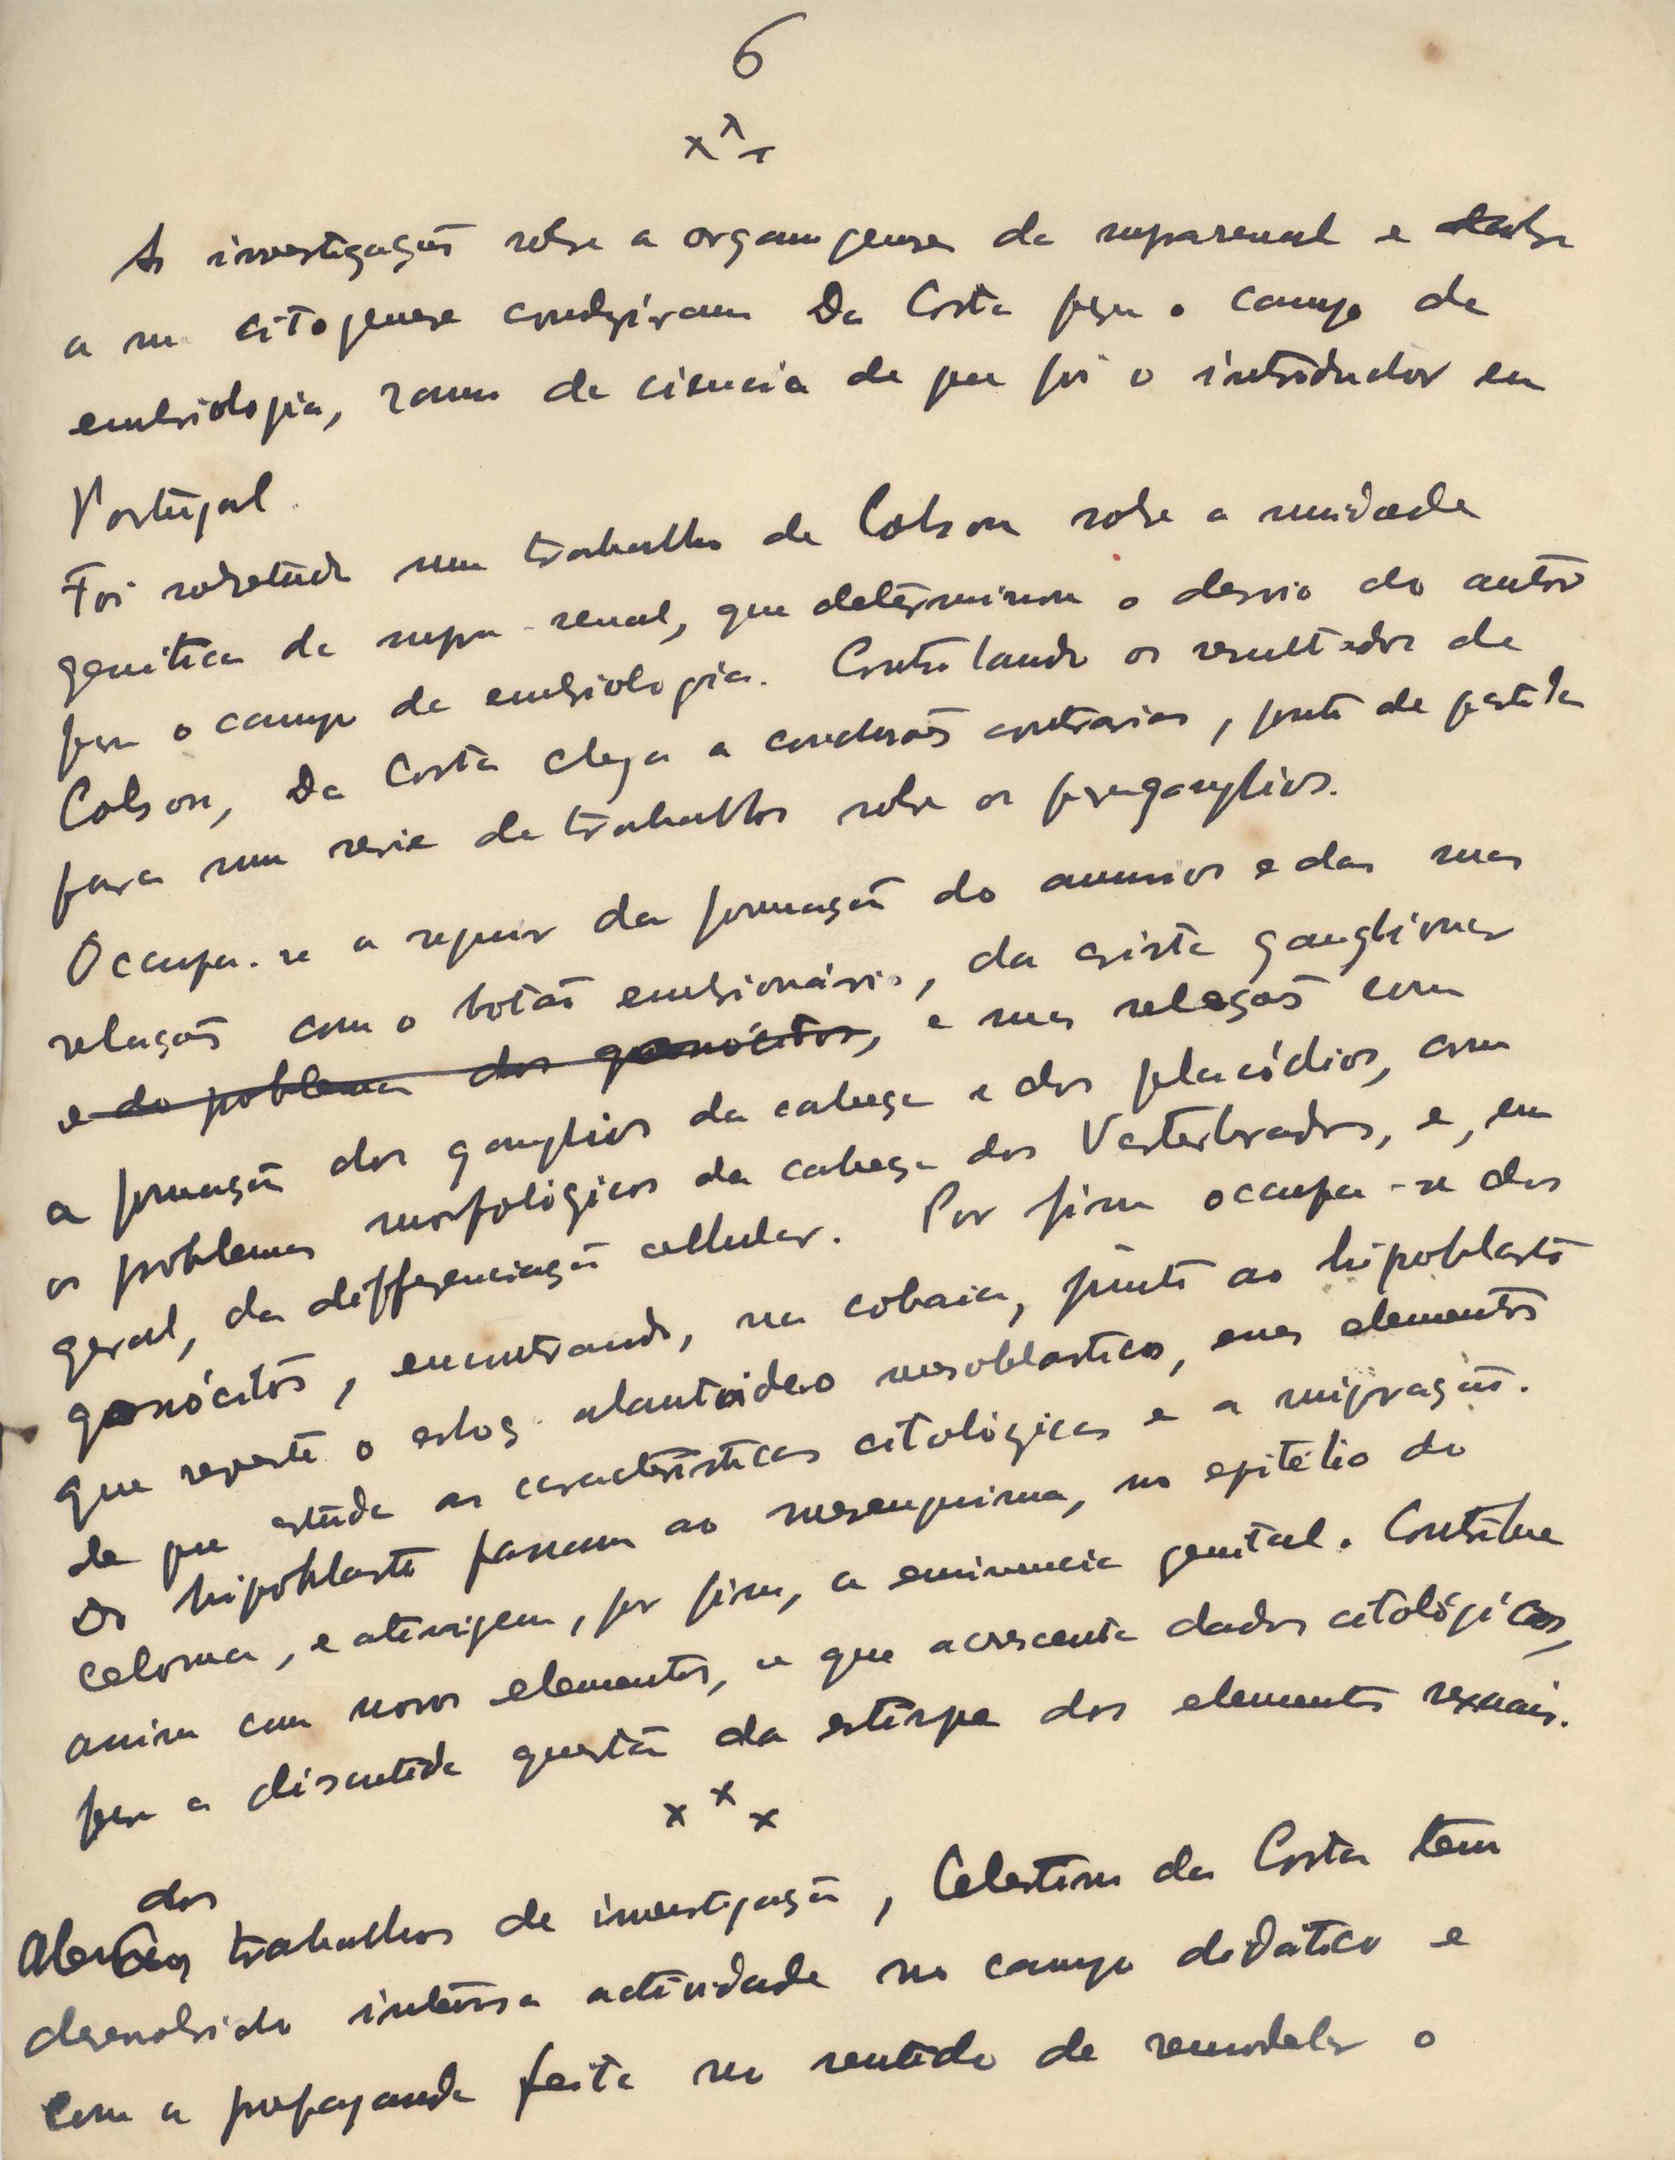 6
x x x
As investigações sobre a organogenese da suparenal e sobre
a sua citogenese conduziram Da Costa para o campo da
embriologia, ramo da ciencia de que foi o introductor em
Portugal.
Foi sobretudo um trabalho de Colson sobre a unidade
genitica da supra-renal, que determinou o desvio do autor
para o campo da embriologia. Controlando os resultados de
Colson, Da Costa chega a conclusões contrarias, ponto de partida
para uma serie de trabalhos sobre os paraganglios.
Occupa-se a seguir da formação do amnios e das suas
relações com o botão embrionário, da crista ganglionar
e do problema dos gonócitos, e suas relações com
a formação dos ganglios da cabeça e dos placódios, com
os problemas morfológicos da cabeça dos Vertebrados, e, em
geral, da differenciação cellular. Por fim occupa-se dos
gonócitos, encontrando, na cobaia, junto ao hipoblasto
que reveste o esboço alantoideo mesoblastico, esses elementos
de que estuda as caracteristicas citológicas e a migração.
Do hipoblasto passam ao mesenquima, no epitélio do
celoma, e atingem, por fim, a eminencia genital. Contribue
assim com novos elementos, a que acrescenta dados citológicos,
para a discutida questão da estirpe dos elementos sexuais.
x x x
dos
Alem trabalhos de investigação, Celestino da Costa tem
desenvolvido intensa actividade no campo didático e
com a propaganda feita no sentido de remodelar o